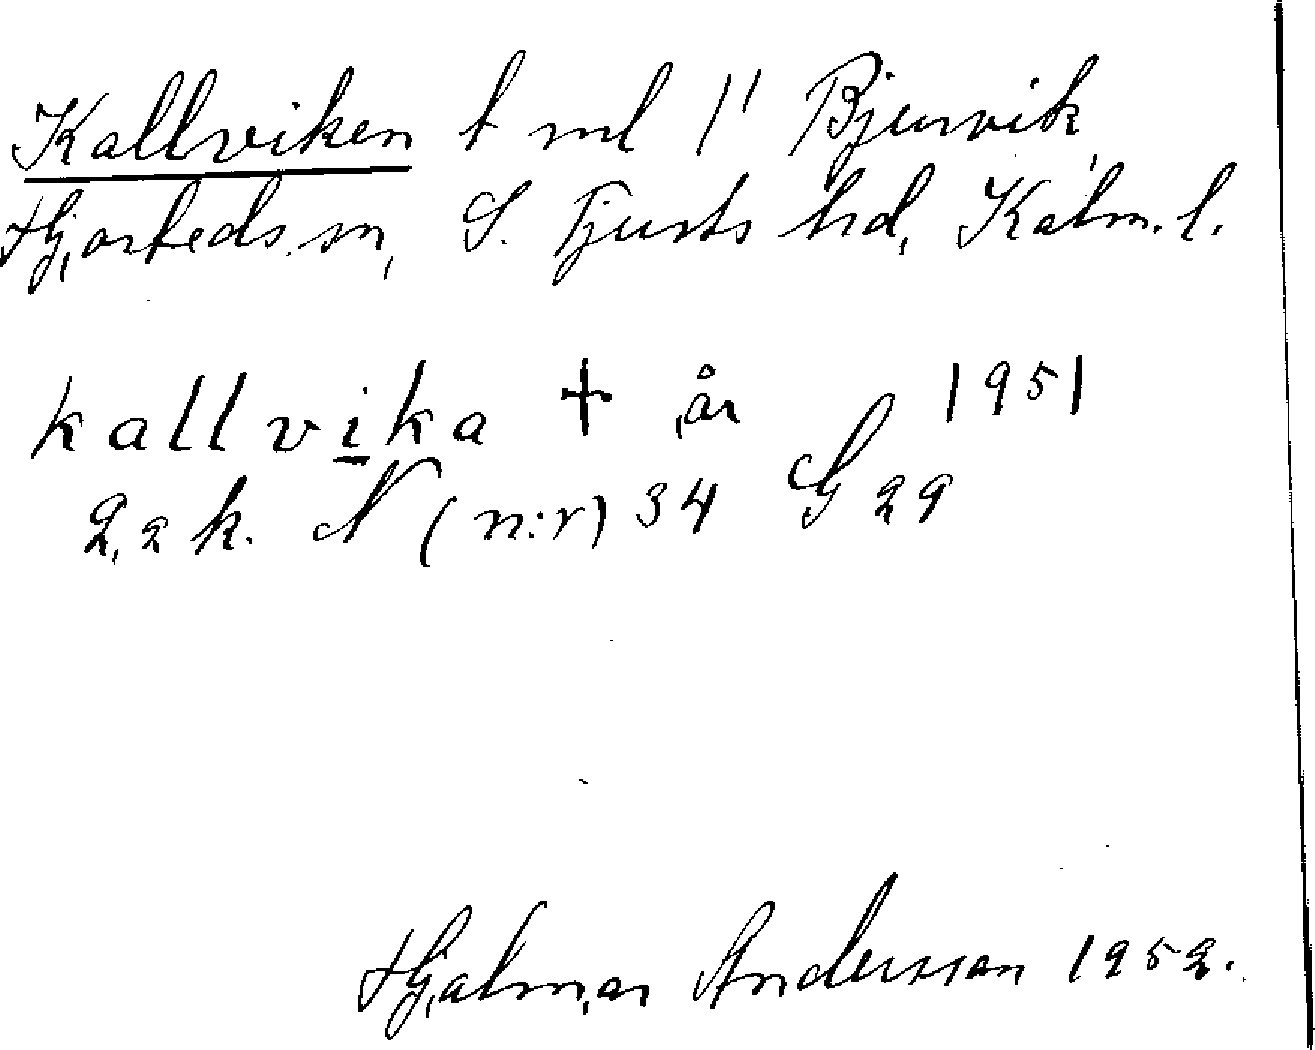 Kallviken t ml 1" Bjursvik
Hjorteds sn, S. Tjusts hd, Kalm. l.
kallvika + år 1951
2,2 k. N (n:r) 34 G 29
Hjalmar Andersson 1952.